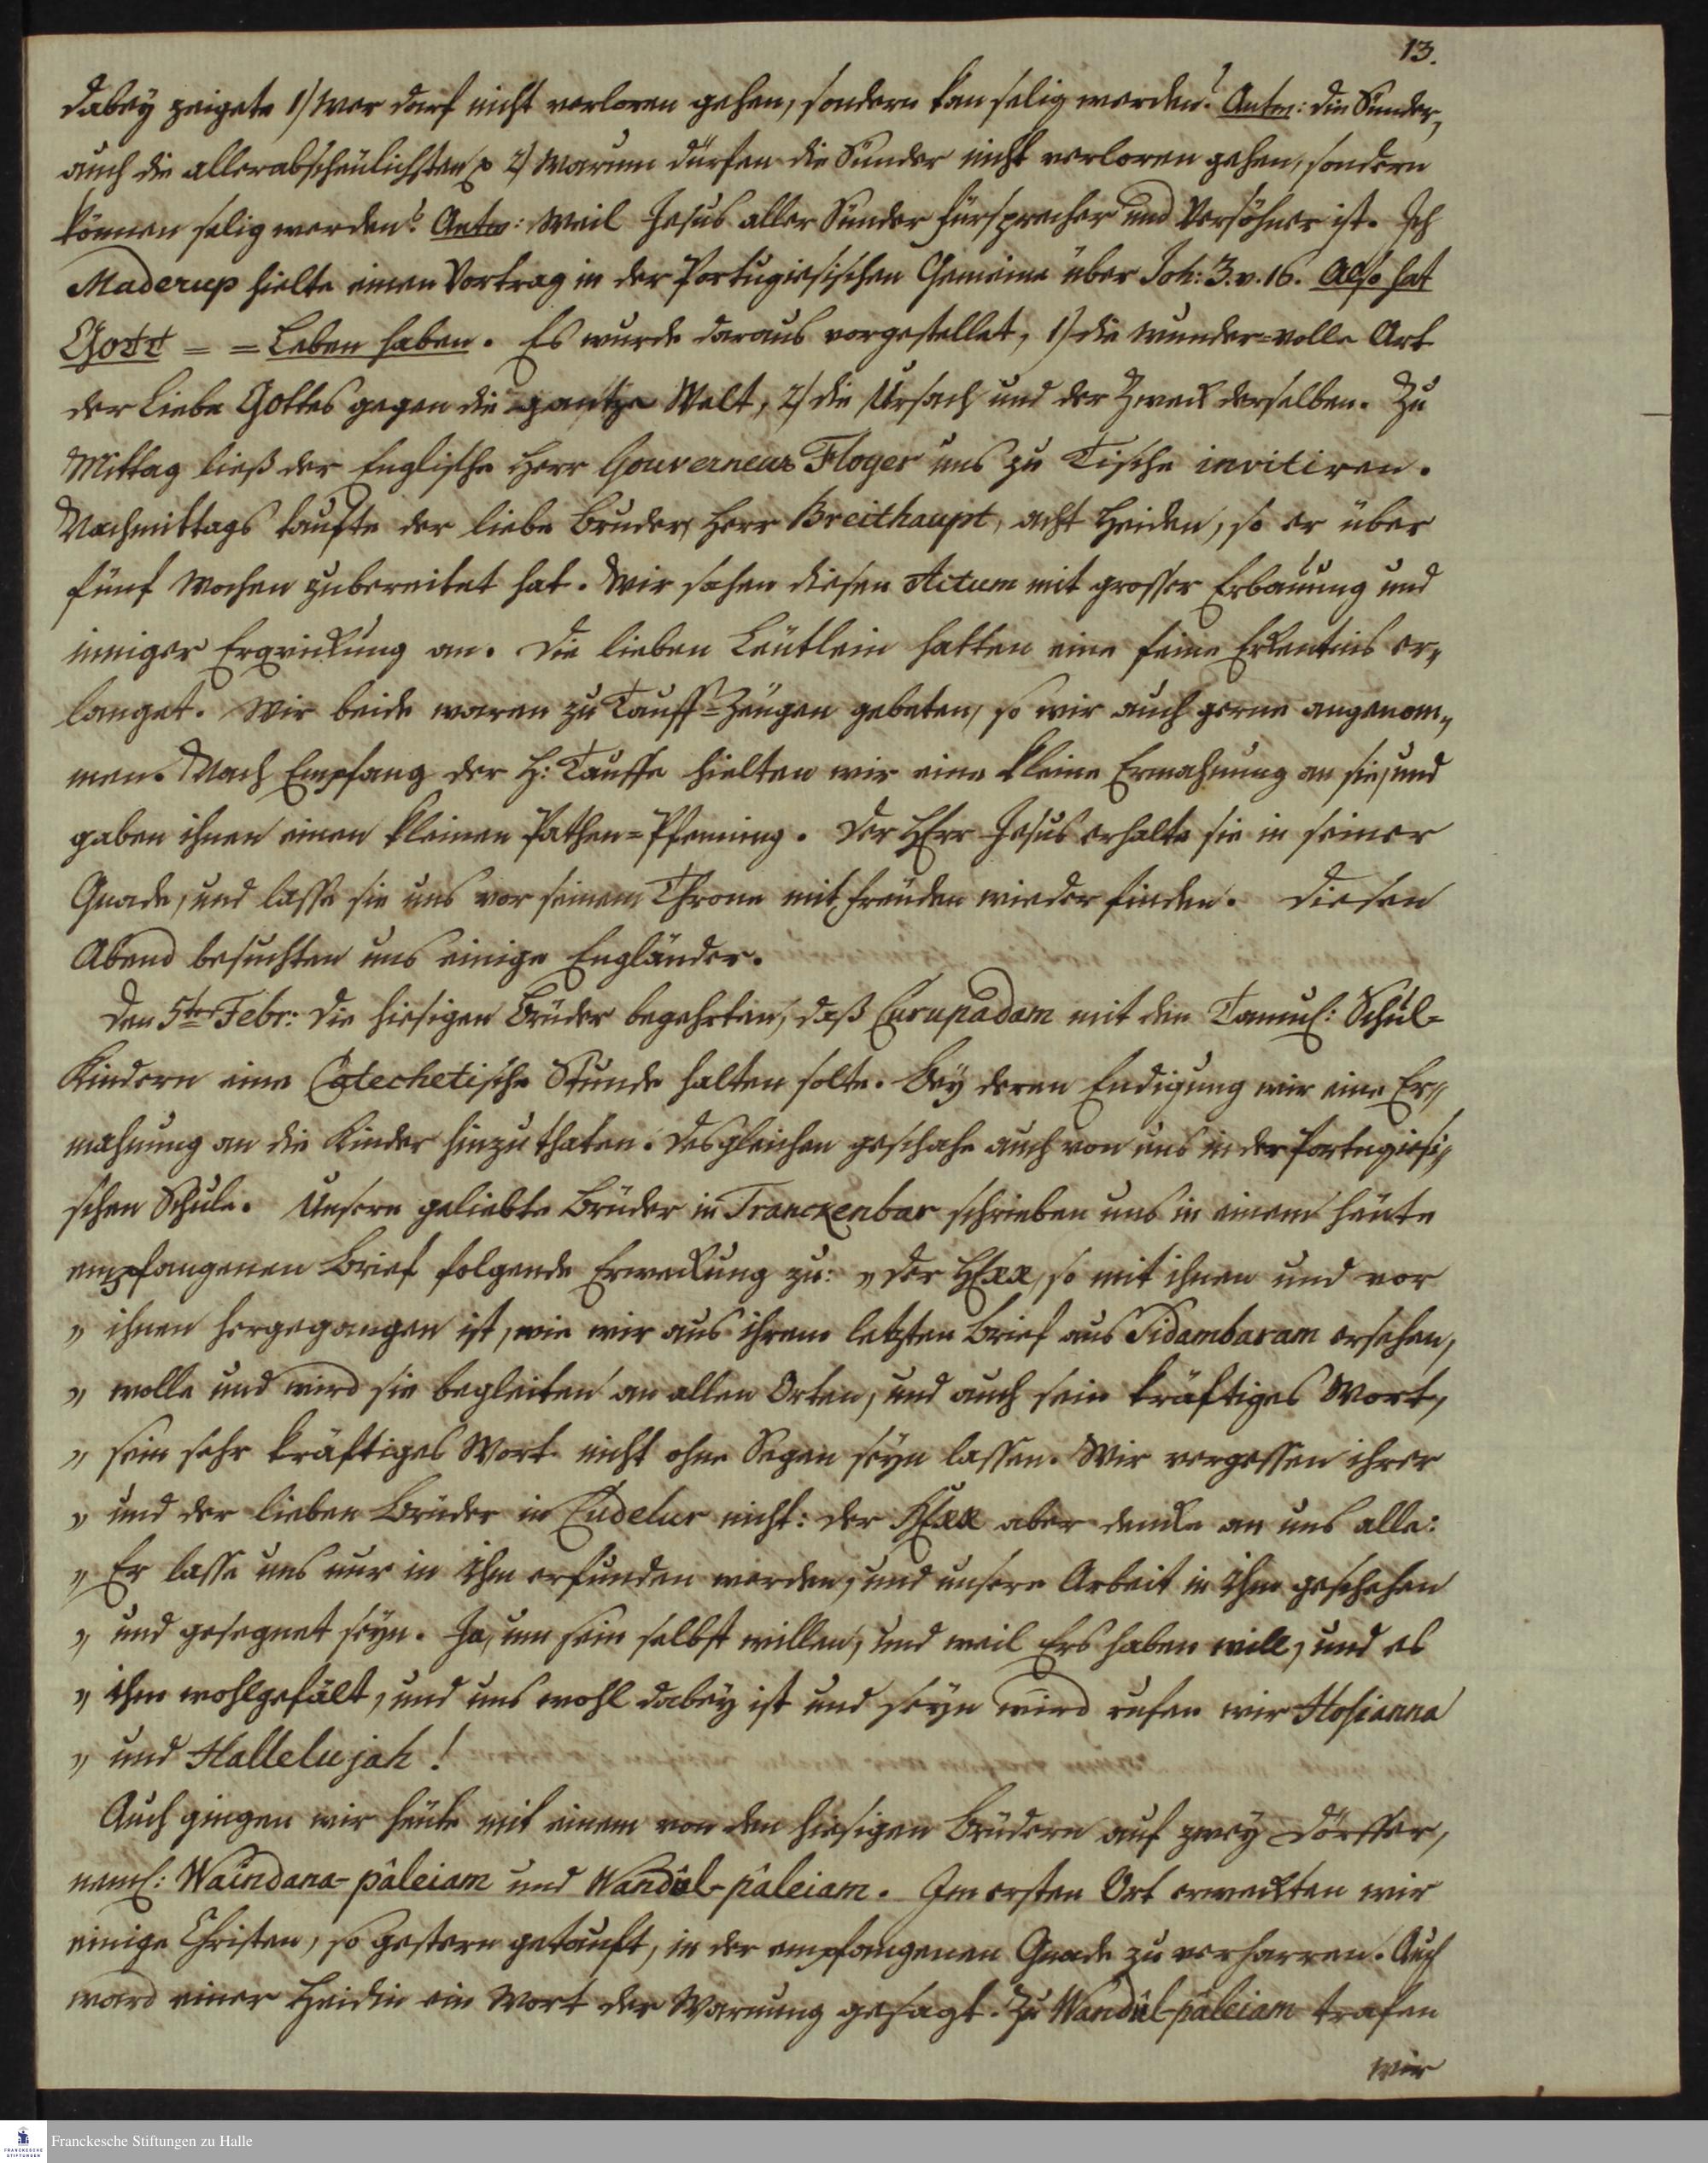 13.
dabey zeigete 1) Wer darf nicht verloren gehen, sondern kan selig werden? Antw: die Sünder,
auch die allerabscheülichsten p 2) Warum dürfen die Sünder nicht verloren gehen, sondern
können selig werden? Antw: Weil Jesus aller Sünder Fürsprecher und Versöhner ist. Ich
Maderup hielte einen Vortrag in der Portugiesischen Gemeine über Joh: 3. v. 16. Also hat
Gott = = Leben haben. Es wurde daraus vorgestellet, 1) die wunder=volle Art
der Liebe Gottes gegen die gantze Welt, 2) die Ursach und der Zweck derselben. Zu
Mittag ließ der Englische Herr Gouverneur Floyer uns zu Tische invitiren.
Nachmittags taufte der liebe Bruder, Herr Breithaupt, acht Heiden, so er über
fünf Wochen zubereitet hat. Wir sahen diesen Actum mit grosser Erbauung und
inniger Erqvickung an. Die lieben Leütlein hatten eine feine Erkentnis er„
langet. Wir beide waren zu Tauff=Zeügen gebeten, so wir auch gerne angenom„
men. Nach Empfang der H: Tauffe hielten wir eine kleine Ermahnung an sie, und
gaben ihnen einen kleinen Pathen=Pfenning. Der HErr Jesus erhalte sie in seiner
Gnade, und lasse sie uns vor seinem Throne mit Freüden wieder finden. Diesen
Abend besuchten uns einige Engländer.
Den 5ten Febr: Die hiesigen Brüder begehrten, daß Curupadam mit den Tamul: Schul-
Kindern eine Catechetische Stunde halten solte. Bey deren Endigung wir eine Er„
mahnung an die Kinder hinzu thaten. Desgleichen geschahe auch von uns in der Portugiesi„
schen Schule. Unsere geliebte Brüder in Tranckenbar schrieben uns in einem heüte
empfangenen Brief folgende Erweckung zu: „ Der HErr, so mit ihnen und vor
„ ihnen hergegangen ist, wie wir aus ihrem letzten Brief aus Sidambaram ersehen,
„ wolle und wird sie begleiten an allen Orten, und auch sein kräftiges Wort,
„ sein sehr kräftiges Wort nicht ohne Segen seyn lassen. Wir vergessen ihrer
„ und der lieben Brüder in Cudelur nicht: der HErr aber dencke an uns alle:
„ Er lasse uns nur in Ihm erfunden werden, und unsere Arbeit in Ihm geschehen
„ und gesegnet seyn. Ja, um sein selbst willen, und weil Ers haben will, und es
„ Ihm wohlgefält, und uns wohl dabey ist und seyn wird rufen wir Hosianna
„ und Hallelujah!
Auch gingen wir heüte mit einem von den hiesigen Brüdern auf zwey Dörffer,
neml: Waindana-pâleiam und Wandûl-pâleiam. Im ersten Ort erweckten wir
einige Christen, so gestern getauft, in der empfangenen Gnade zu verharren. Auch
ward einer Heidin ein Wort der Warnung gesagt. Zu Wandûl-pâleiam trafen
wir
Franckesche Stiftungen zu Halle